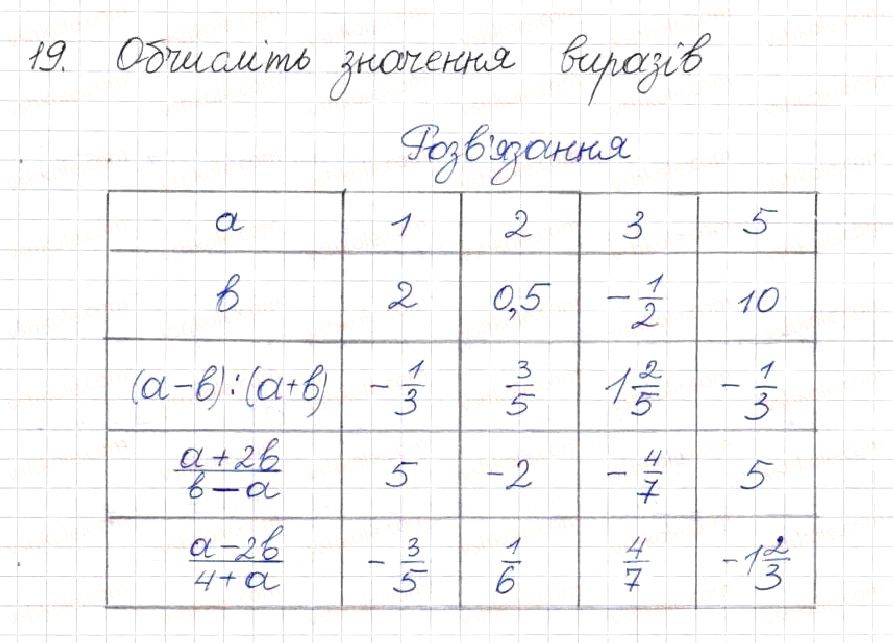 19. Обчисліть значення виразів
Розв'язання
a 1 2 3 5
b 2 0,5 -1/2 10
(a-b):(a+b) -1/3 3/5 1 2/5 -1/3
(a+2b)/(b-a) 5 -2 -4/7 5
(a-2b)/(4+a) -3/5 1/6 4/7 -1 2/3